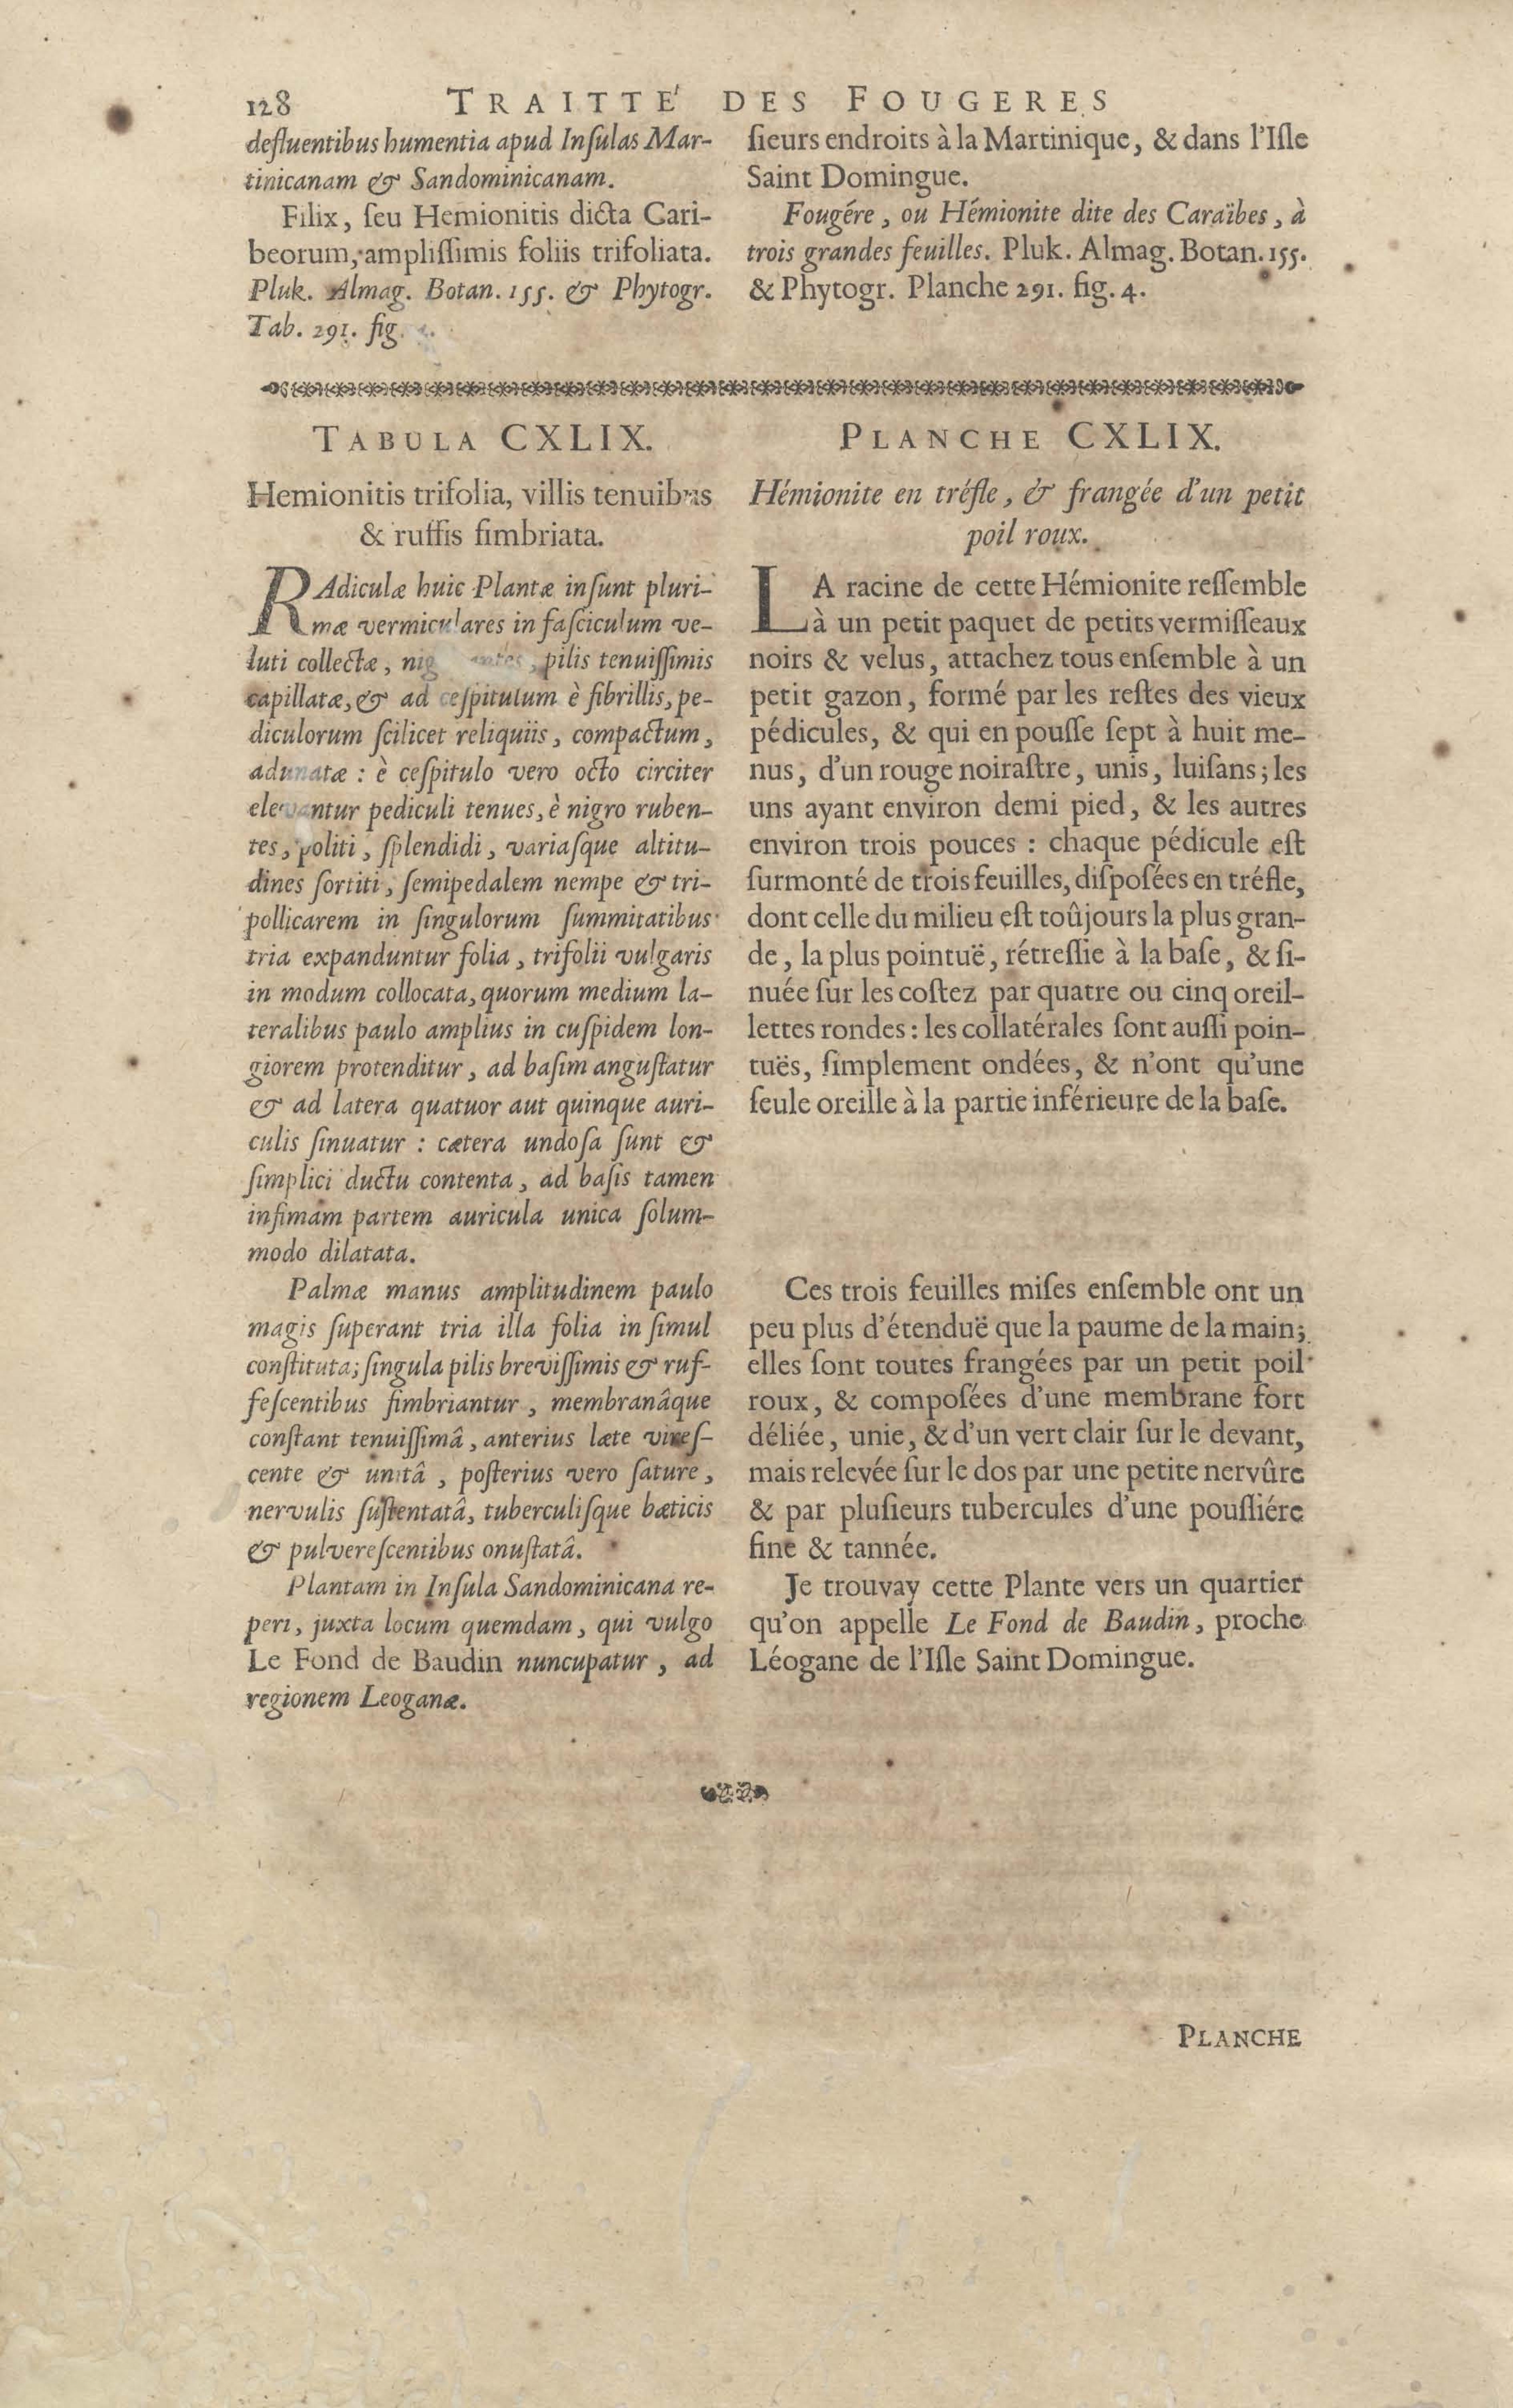 128 TRAITTE' DES FOUGERES
defluentibus humentia apud Inſulas Mar-
tinicanam & Sandominicanam.
Filix, ſeu Hemionitis dicta Cari-
beorum, ampliſſimis foliis trifoliata.
Pluk. Almag. Botan. 155. & Phytogr.
Tab. 291. fig.
TABULA CXLIX.
Hemionitis trifolia, villis tenuibus
& ruffis fimbriata.
RAdiculæ huic Plantæ inſunt pluri-
mæ vermiculares in faſciculum ve-
luti collectæ, pilis tenuiſſimis
capillatæ, & ad ceſpitulum è fibrillis, pe-
diculorum ſcilicet reliquiis, compactum,
adunatæ : è ceſpitulo vero octo circiter
elevantur pediculi tenues, è nigro ruben-
tes, politi, ſplendidi, variaſque altitu-
dines ſortiti, ſemipedalem nempe & tri-
pollicarem in ſingulorum ſummitatibus
tria expanduntur folia, trifolii vulgaris
in modum collocata, quorum medium la-
teralibus paulo amplius in cuſpidem lon-
giorem protenditur, ad baſim anguſtatur
& ad latera quatuor aut quinque auri-
culis ſinuatur : cætera undoſa ſunt &
ſimplici ductu contenta, ad baſis tamen
infimam partem auricula unica ſolum-
modo dilatata.
Palmæ manus amplitudinem paulo
magis ſuperant tria illa folia in ſimul
conſtituta; ſingula pilis breviſſimis & ruf-
feſcentibus fimbriantur, membranâque
conſtant tenuiſſimâ, anterius læte vireſ-
cente & unitâ, poſterius vero ſature,
nervulis ſuſtentatâ, tuberculiſque bæticis
& pulvereſcentibus onuſtatâ.
Plantam in Inſula Sandominicana re-
peri, juxta locum quemdam, qui vulgo
Le Fond de Baudin nuncupatur, ad
regionem Leoganæ.
ſieurs endroits à la Martinique, & dans l'Iſle
Saint Domingue.
Fougére, ou Hémionite dite des Caraïbes, à
trois grandes feuilles. Pluk. Almag. Botan. 155.
& Phytogr. Planche 291. fig. 4.
PLANCHE CXLIX.
Hémionite en tréfle, & frangée d'un petit
poil roux.
LA racine de cette Hémionite reſſemble
à un petit paquet de petits vermiſſeaux
noirs & velus, attachez tous enſemble à un
petit gazon, formé par les reſtes des vieux
pédicules, & qui en pouſſe ſept à huit me-
nus, d'un rouge noiraſtre, unis, luiſans; les
uns ayant environ demi pied, & les autres
environ trois pouces : chaque pédicule eſt
ſurmonté de trois feuilles, diſpoſées en tréfle,
dont celle du milieu eſt toûjours la plus gran-
de, la plus pointuë, rétreſſie à la baſe, & ſi-
nuée ſur les coſtez par quatre ou cinq oreil-
lettes rondes : les collatérales ſont auſſi poin-
tuës, ſimplement ondées, & n'ont qu'une
ſeule oreille à la partie inférieure de la baſe.
Ces trois feuilles miſes enſemble ont un
peu plus d'étenduë que la paume de la main;
elles ſont toutes frangées par un petit poil
roux, & compoſées d'une membrane fort
déliée, unie, & d'un vert clair ſur le devant,
mais relevée ſur le dos par une petite nervûre
& par pluſieurs tubercules d'une pouſſiére
fine & tannée.
Je trouvay cette Plante vers un quartier
qu'on appelle Le Fond de Baudin, proche
Léogane de l'Iſle Saint Domingue.
PLANCHE